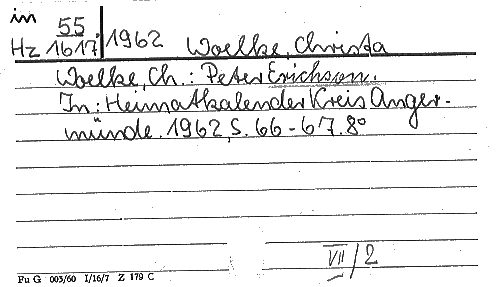 im 55
Hz 1617 1962 Woelke, Christa
Woelke, Ch.: Peter Erichson.
In: Heimatkalender Kreis Anger-
münde. 1962, S. 66-67. 8°
VII/2
Fu G 003/60 I/16/7 Z 179 C